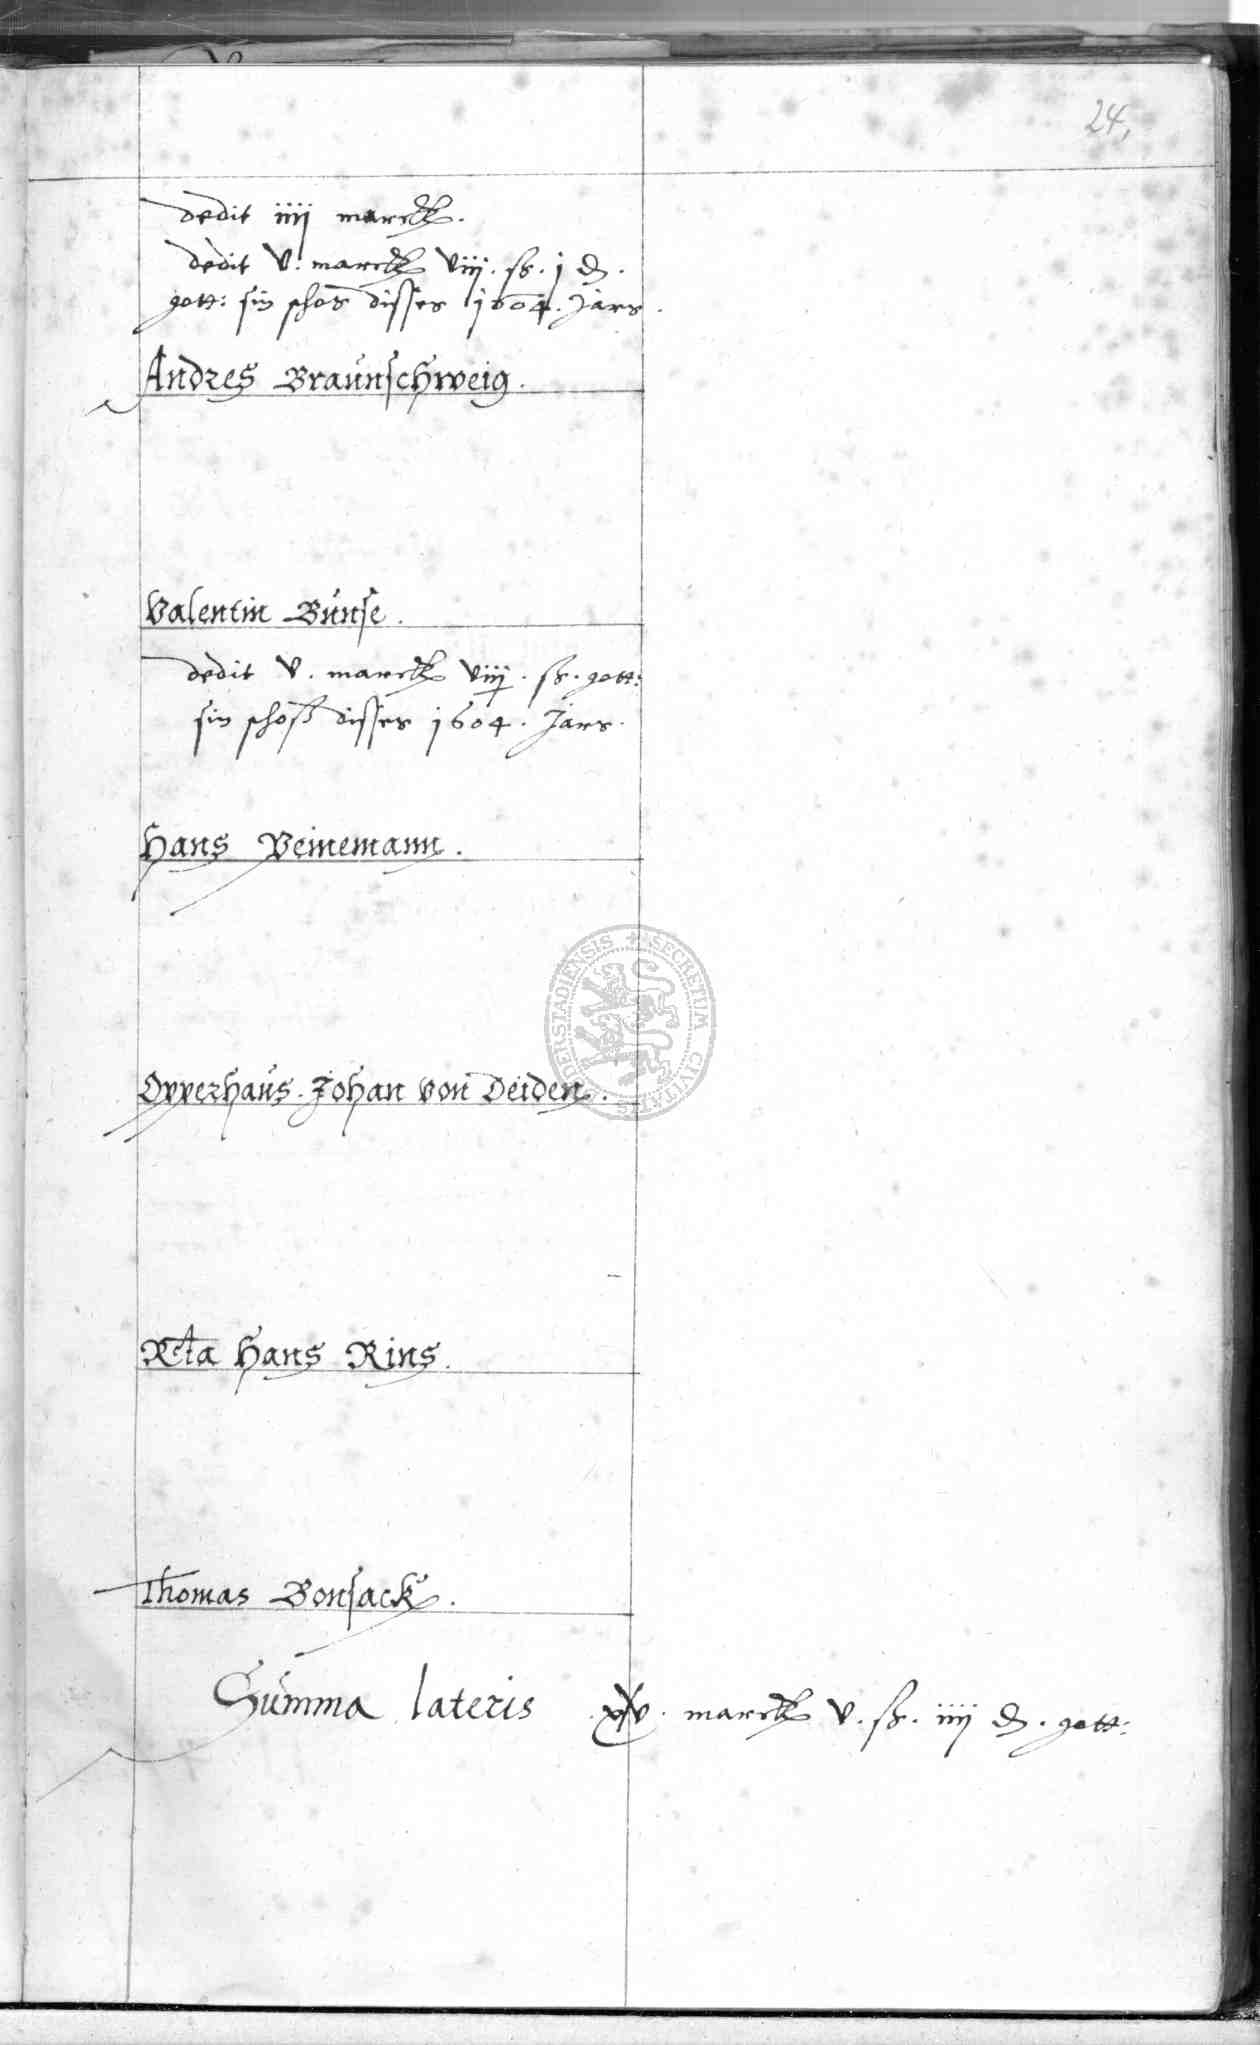 24,
dedit iiij marck.
dedit v. marck viij. ß. j d.
gott: sin schos disses 1604. Jars.
Andres Braunschweig.
Valentin Bunse.
dedit v. marck viij. ß. gott:
sin schoß disses 1604. Jars.
Hans Veinemann.
Opperhaus. Johan von Deiden.
Rcta Hans Rins.
Thomas Bonsack.
Summa lateris marck v. ß. iiij d. gott:
SECRETUM CIVITATIS DUDERSTADIENSIS